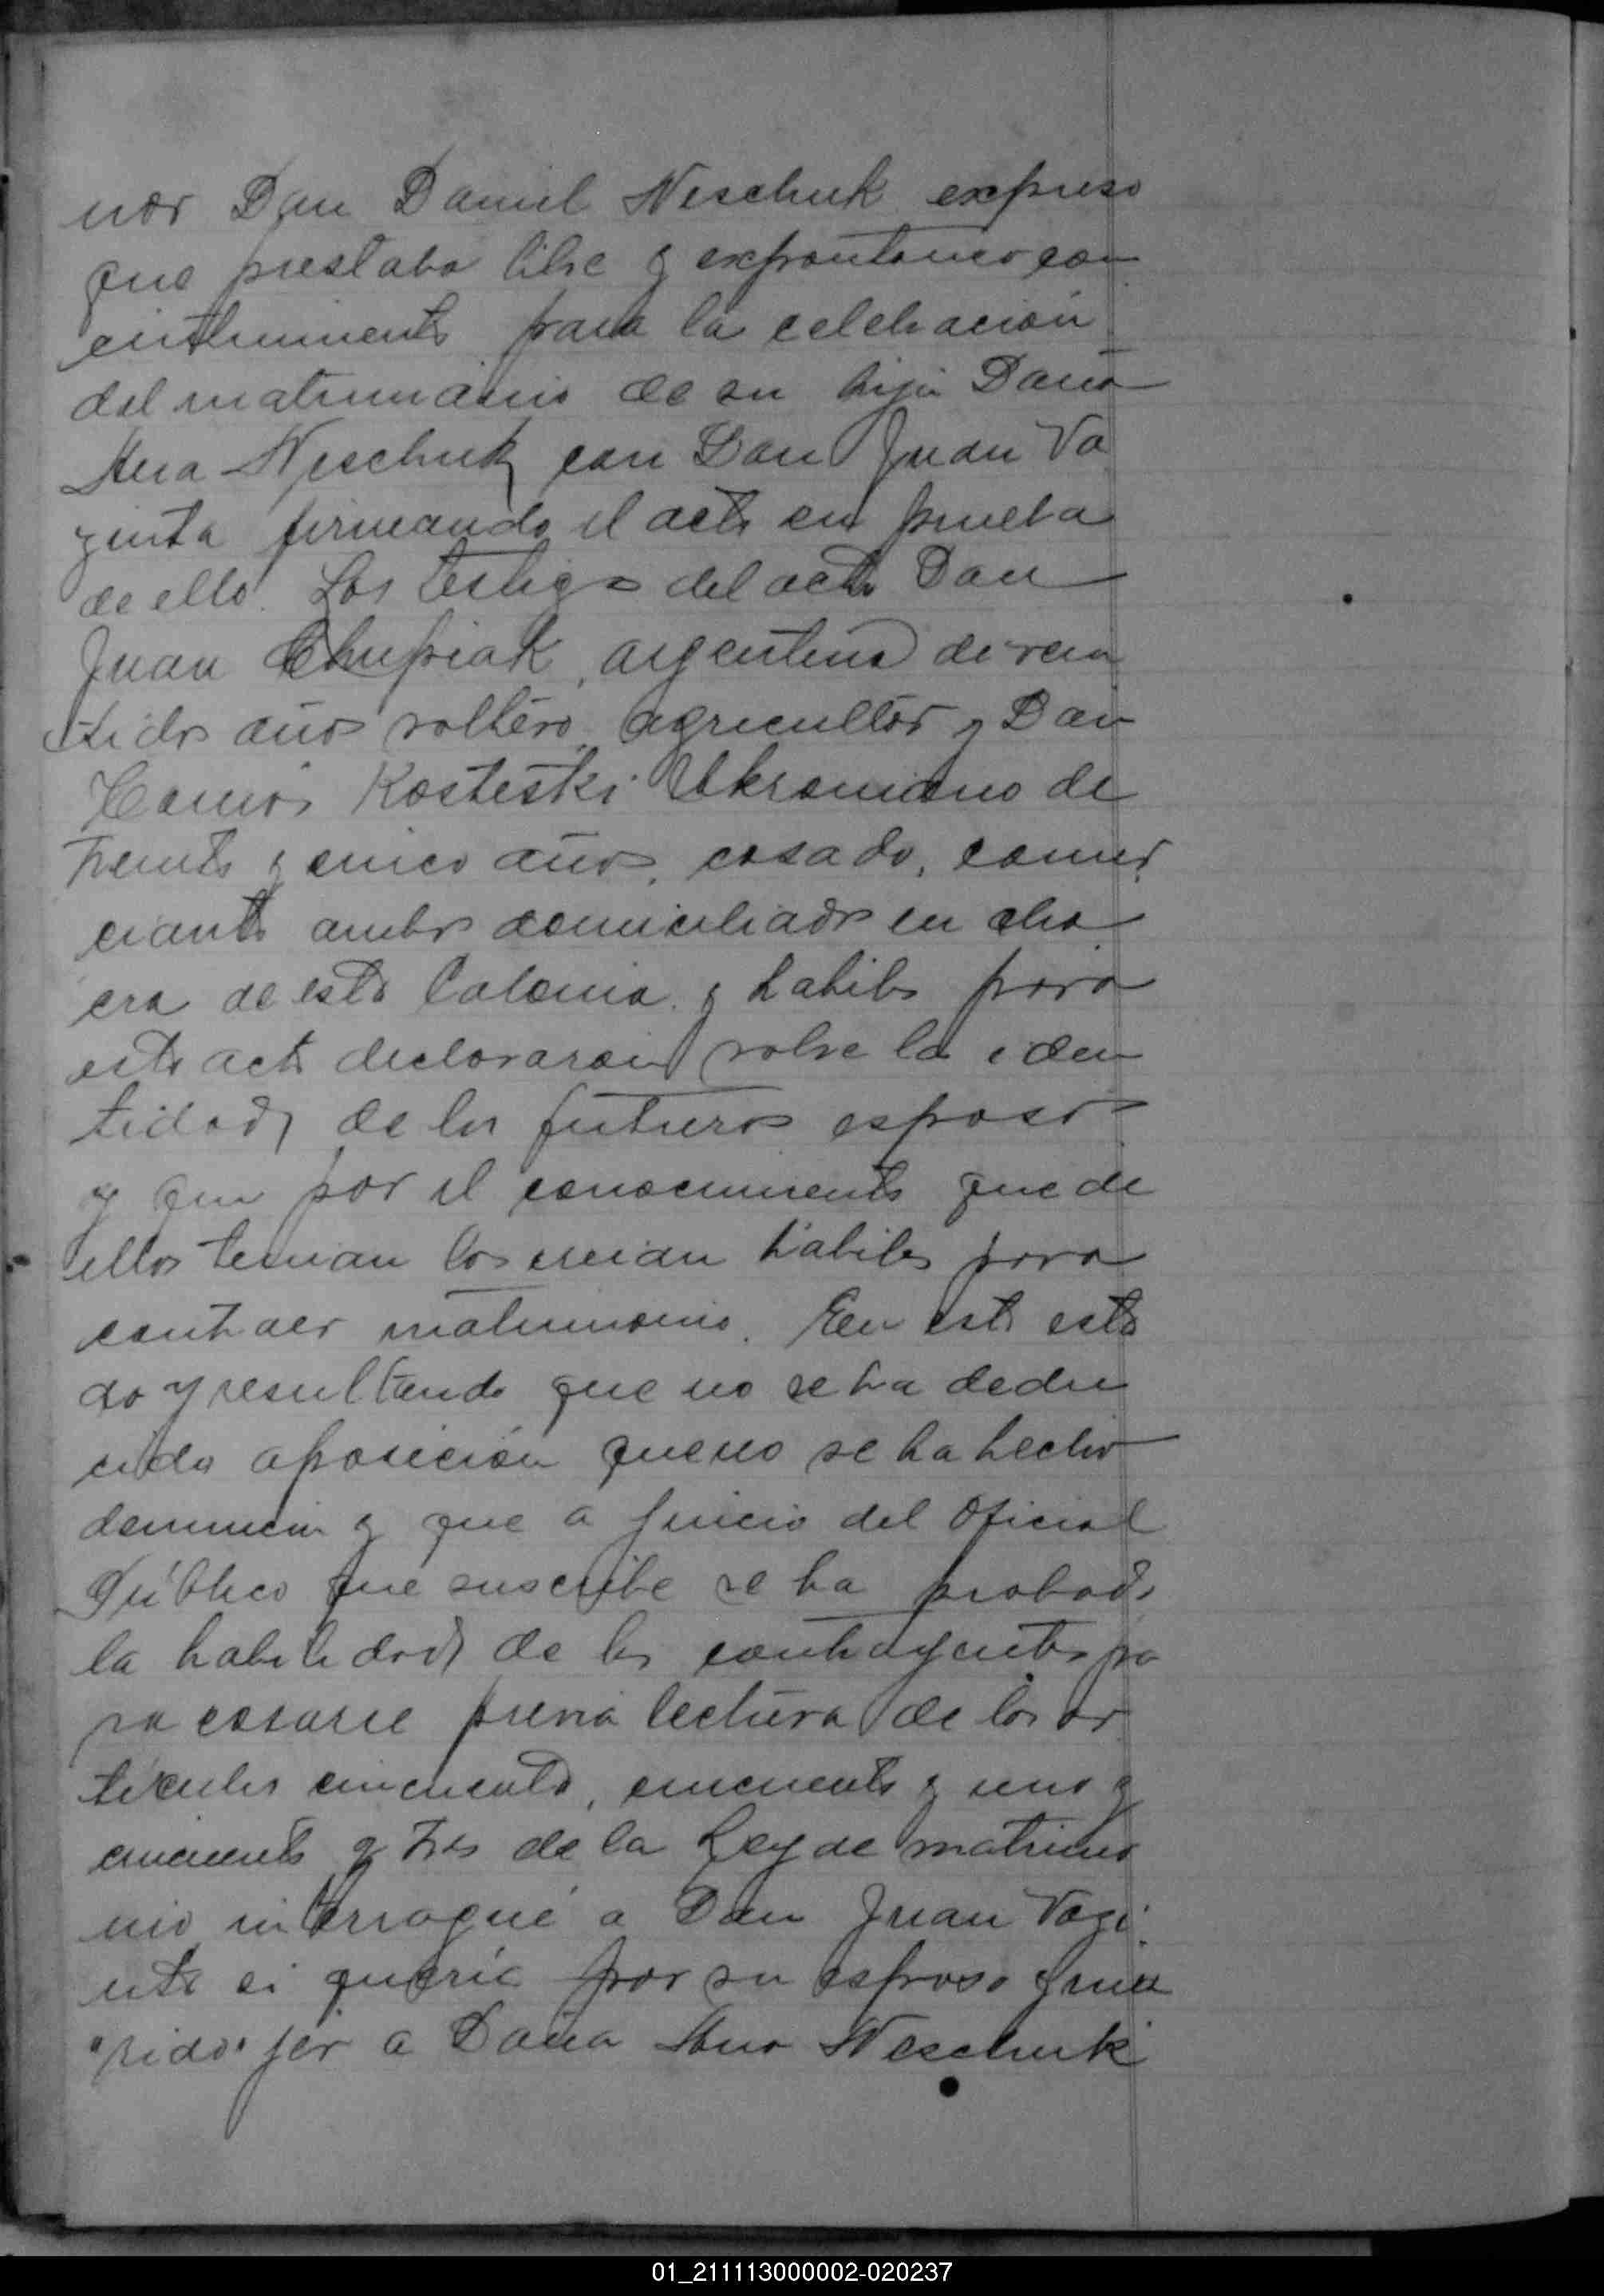 nor Don Daniel Neschuk expreso
que prestaba libre y expontaneo con
cintimiento para la celebración
del matrimonio de su hija Doña
Ana Neschuk con Don Juan Va
zinta firmando el acto en prueba
de ello. Los testigos del acto Don
Juan Chupiak, argentino de vein
tidos años soltero agricultor y Don
Kosteski Ukraniano de
treinta y cinco años, casado, comer
ciante ambos domiciliados en cha
cra de esta Colonia y habiles para
este acto declararon sobre la iden
tidad de los futuros esposos
y que por el conocimiento que de
ellos tenian los creian hábiles para
contraer matrimonio. En este esta
do y resultando que no se ha dedu
cido oposición que no se ha hecho
denuncia y que a juicio del Oficial
Público que suscribe se ha probado
la habilidad de los contrayentes pa
ra casarse previa lectura de los ar
ticulos cincuenta, cincuenta y uno y
cincuenta y tres de la Ley de matrimo
nio interrogué a Don Juan Vazi
nta si queria por su esposa y
jer a Doña Ana Neschuk
01_211113000002-020237